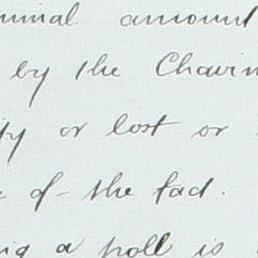 minal amount
by the Chairm
ty or lost or
of the fad.
ng a poll is